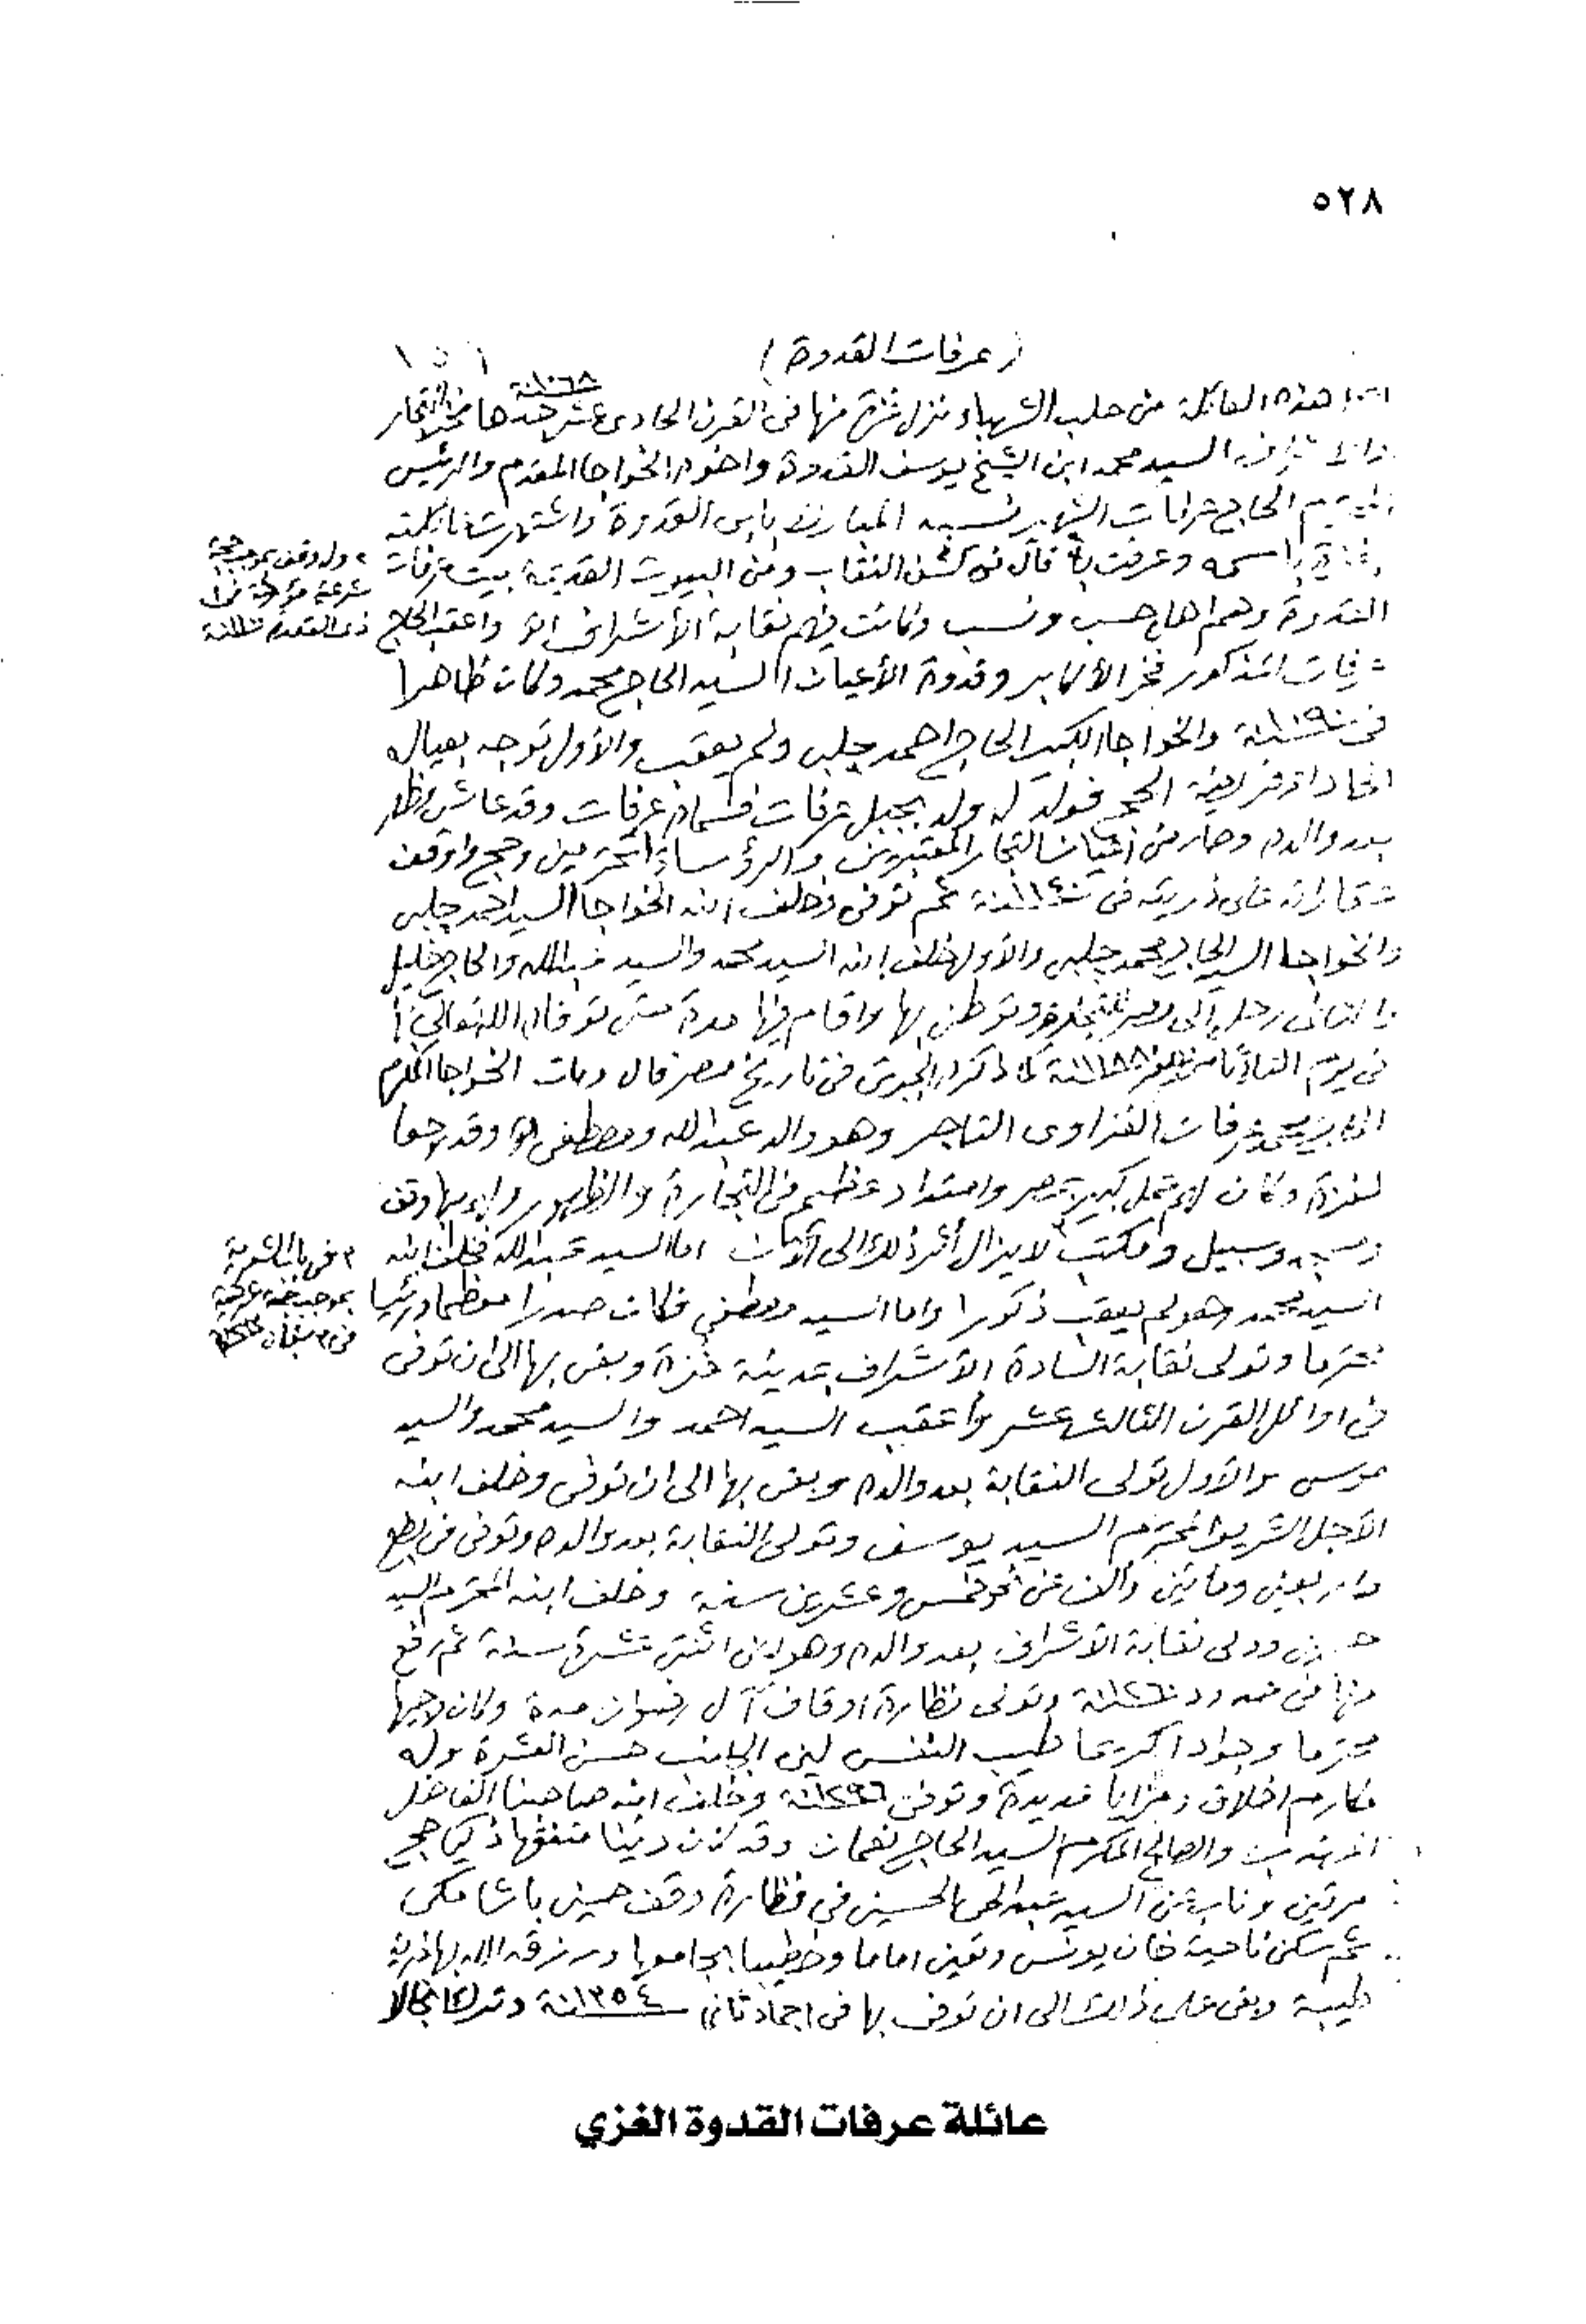 ٥٢٨
(عرفات القدوة)
هذه العائلة من حلب الشهباء نزل غزة منها في القرن الحادي عشر جدها فخر التجار
١٠٦٨
السيد محمد ابن الشيخ يوسف القدوة واخوه الخواجا المقدم والرئيس
الحاج عرفات الشهير نسبه المبارك بابن القدوة واشتهرت عائلته
باسمه وعرفت به قال في كشف النقاب ومن البيوت القديمة بيت عرفات
القدوة وهم اهل حسب ونسب وكانت فيهم نقابة الأشراف الخ واعقب الحاج
عرفات المذكور فخر الأكابر وقدوة الأعيان السيد الحاج محمد وكان ظاهرا
في سنة ١٠٩٠ والخواجا الكبير الحاج احمد جلبي ولم يعقب والأول توجه بعياله
فريضة الحج فولد له ولد بجبل عرفات فسماه عرفات وقد عاش وظهر
بعد والده وصار من أعيان التجار المعتبرين والرؤساء المحترمين وحج واوقف
عقاراته على ذريته في سنة ١١٤٠ ثم توفي وخلف ابنه الخواجا السيد احمد جلبي
والخواجا السيد الحاج محمد جلبي والأول خلف ابنه السيد محمد والسيد عبدالله والحاج خليل
والثاني رحل الى مصر للتجارة وتوطن بها واقام فيها مدة حتى توفاه الله تعالى
في يوم سنة ١١٨٨ كما ذكره الجبرتي في تاريخ مصر قال ومات الخواجا المكرم
الحاج محمد عرفات الغزاوي التاجر وهو والد عبدالله ومصطفى الخ وقد رجعا
لغزة وكان لهم محل كبير بمصر وامتداد عظيم في التجارة والظهور ولهم بها وقف
ومسجد وسبيل ومكتب لا يزال أثر ذلك الى الآن اما السيد عبدالله فخلف ابنه
السيد محمد وهو لم يعقب ذكورا واما السيد مصطفى فكان صدرا معظما ورئيسا
محترما وتولى نقابة السادة الأشراف بمدينة غزة وبقي بها الى ان توفي
في اوائل القرن الثالث عشر وأعقب السيد احمد والسيد محمد والسيد
موسى والأول تولى النقابة بعد والده وبقي بها الى ان توفي وخلف ابنه
الأجل الشريف المحترم السيد يوسف وتولى النقابة بعد والده وتوفي في بضع
واربعين ومائتين وألف عن نحو خمس وعشرين سنة وخلف ابنه المحترم السيد
حسين وولي نقابة الأشراف بعد والده وهو ابن اثنتي عشرة سنة ثم رفع
منها في حدود سنة ١٢٦٠ وتولى نظارة اوقاف آل رضوان مدة وكان وجيها
محترما وجوادا كريما طيب النفس لين الجانب حسن العشرة وله
مكارم اخلاق ومزايا عديدة وتوفي سنة ١٢٩٦ وخلف ابنه صاحبنا الفاضل
والصالح المكرم السيد الحاج نعمان وقد كان دينا متفقها ذكيا حج
مرتين وناب عن السيد عبد الحي الحسيني في نظارة وقف حسين باشا مكي
ثم سكن ناحية خان يونس وتعين اماما وخطيبا بجامعها ورزقه الله بها ذرية
طيبة وبقي على ذلك الى ان توفي بها في جماد ثاني سنة ١٣٥٤ وترك انجالا
وله وقف بموجب حجة
شرعية مؤرخة في
ذي القعدة
في باب الشعرية
بموجب حجة شرعية
عائلة عرفات القدوة الغزي